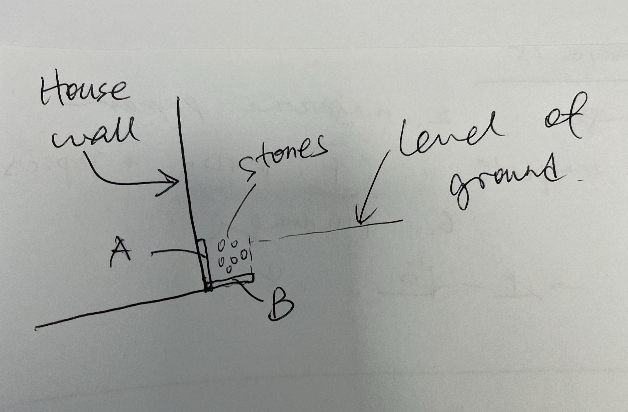 House
wall
stones
Level of
ground.
A
B